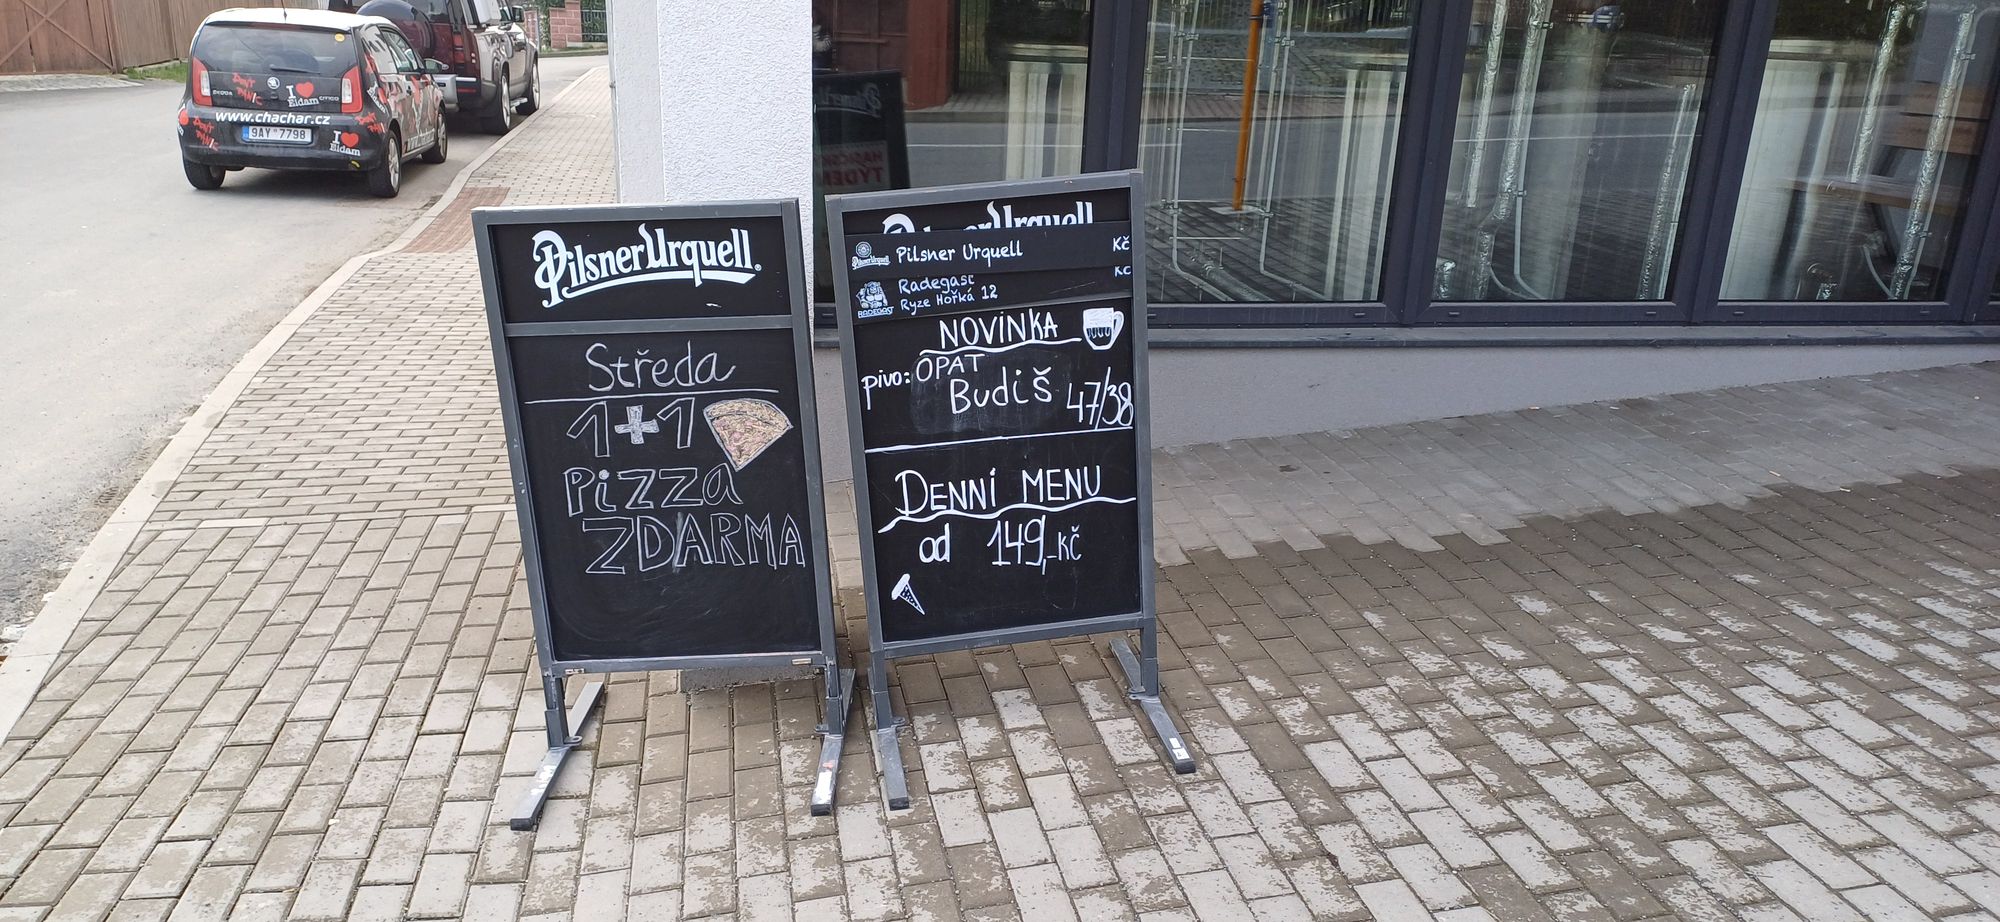 ŠKODA
DON'T PANIC
I ❤ Eldam
CITIGO
www.chachar.cz
9AY 7798
I ❤ Eldam
Pilsner Urquell
Středa
1+1
Pizza
ZDARMA
Pilsner Urquell
Pilsner Urquell Kč
Radegast Kč
Ryze Hořká 12
RADEGAST
NOVINKA
pivo: OPAT
Budiš 47/38
DENNÍ MENU
od 149,-Kč
TÝDEN